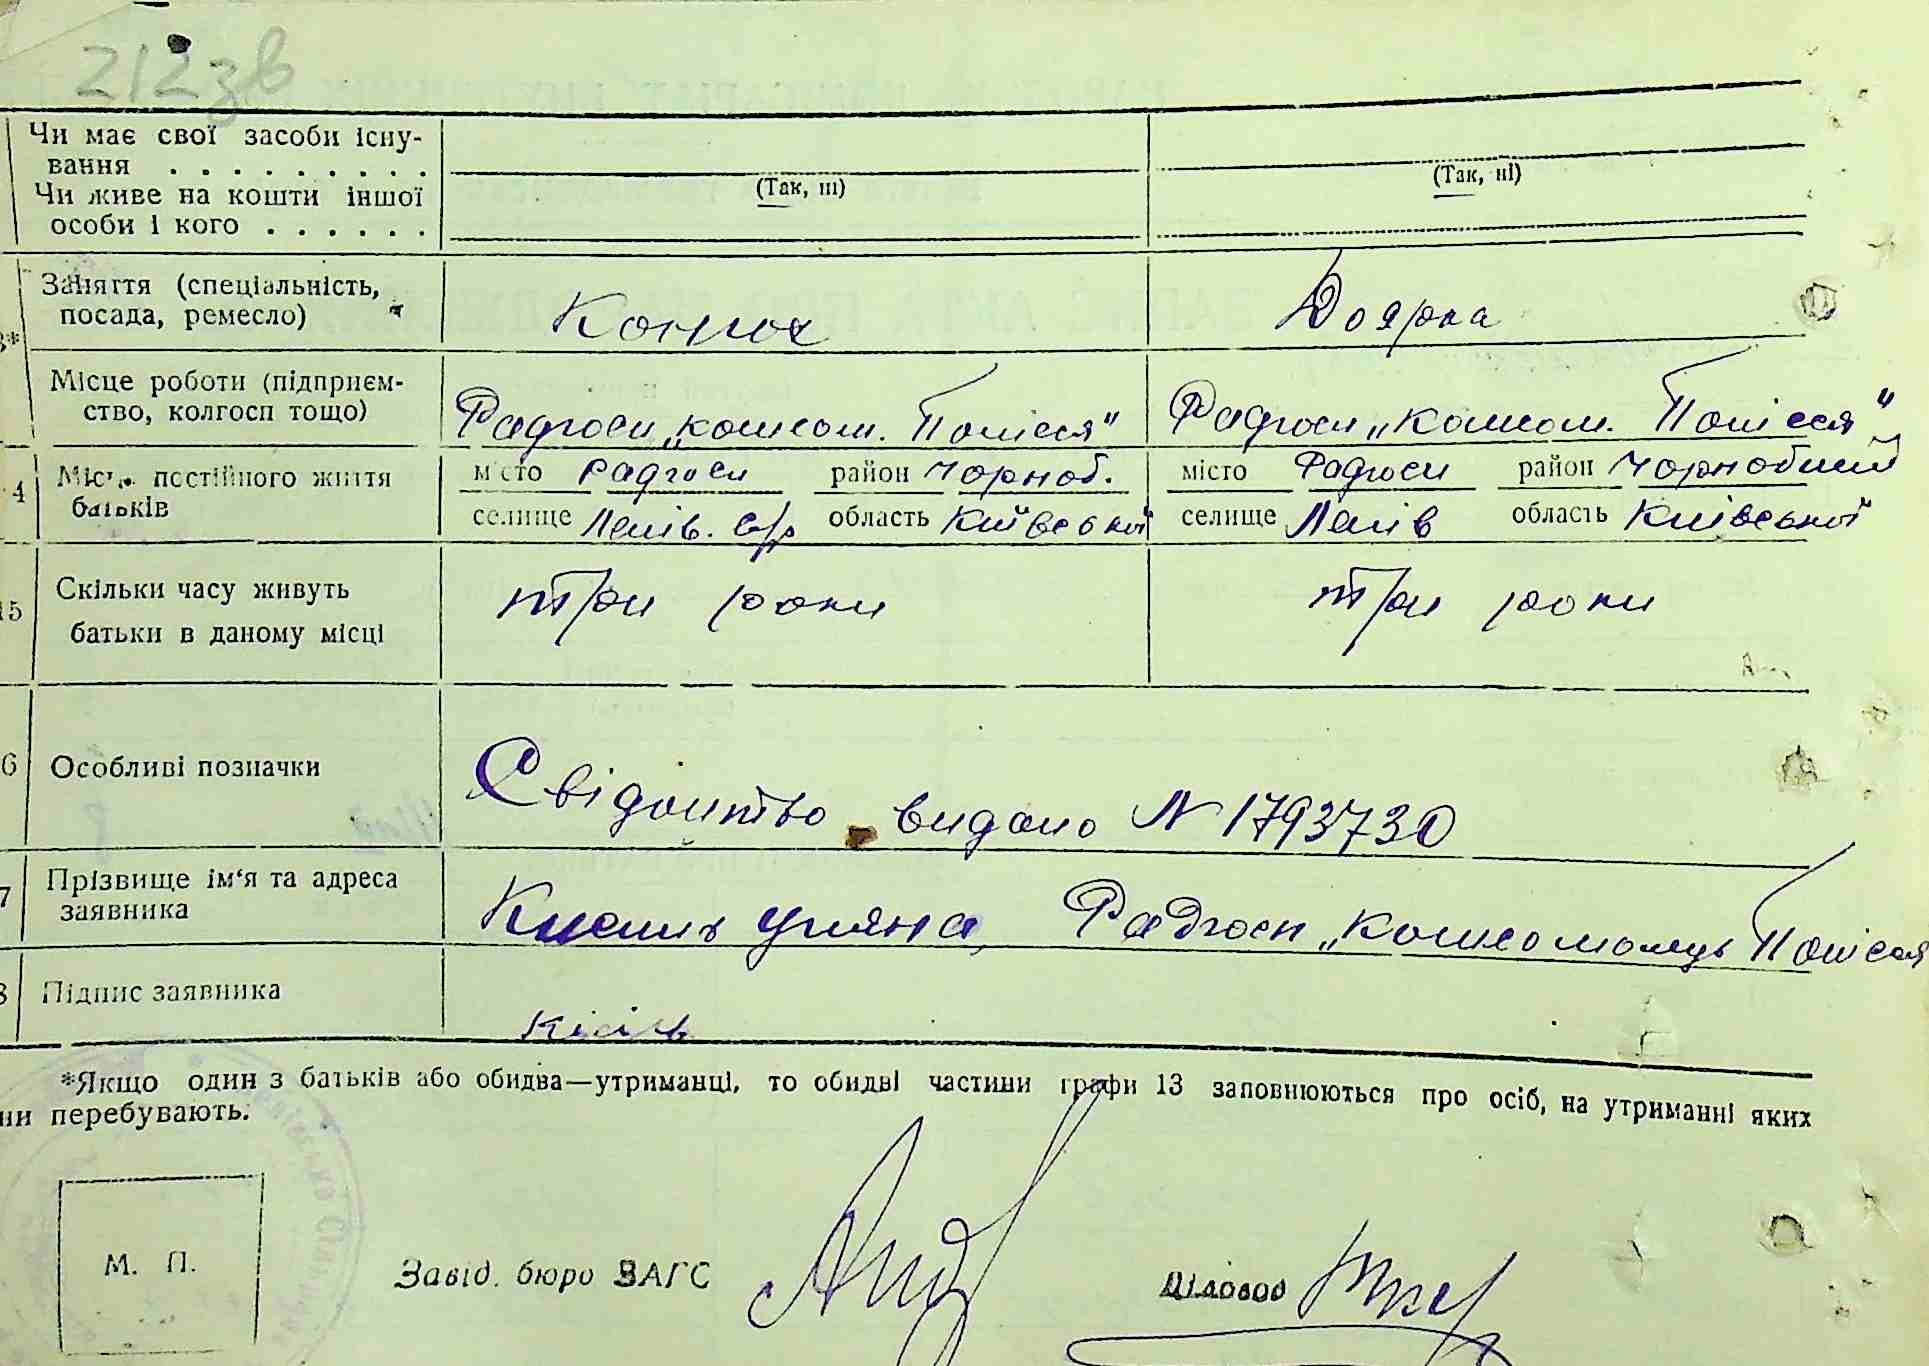 212зв
Чи має свої засоби існу-
вання . . . . . . . . .
(Так, ні)
(Так, ні)
Чи живе на кошти іншої
особи і кого . . . . . .
3*
Заняття (спеціальність,
посада, ремесло)
Конюх
Доярка
Місце роботи (підприєм-
ство, колгосп тощо)
Радгосп „Комсом. Полісся"
Радгосп „Комсом. Полісся"
4
Місце постійного життя
батьків
місто Радгосп район Чорноб.
селище Лелів. с/р область Київської
місто Радгосп район Чорнобиль
селище Лелів область Київської
15
Скільки часу живуть
батьки в даному місці
три роки
три роки
6
Особливі позначки
Свідоцтво видано N 1793730
7
Прізвище ім'я та адреса
заявника
Кисиль Уляна, Радгосп „Комсомолець Полісся
8
Підпис заявника
*Якщо один з батьків або обидва—утриманці, то обидві частини графи 13 заповнюються про осіб, на утриманні яких
ни перебувають.
М. П.
Завід. бюро ЗАГС
Діловод